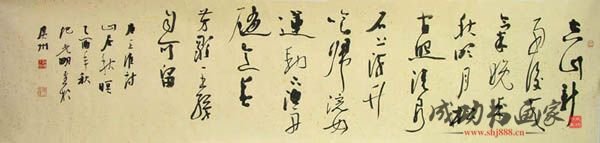 空山新
雨後天
氣晚來
秋明月松
間照清泉
石上流竹
喧歸浣女
蓮動下漁舟
隨意春
芳歇王孫
自可留
右王維詩
山居秋暝
乙酉年秋
光明書於
成功书画家
www.shj888.com